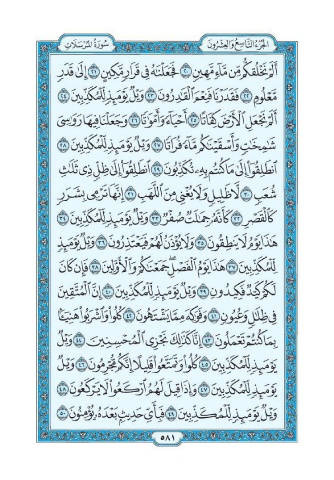 سورة المرسلات
الجزء التاسع والعشرون
ألم نخلقكم من ماء مهين ٢٠ فجعلناه في قرار مكين ٢١ إلى قدر
معلوم ٢٢ فقدرنا فنعم القادرون ٢٣ ويل يومئذ للمكذبين ٢٤
ألم نجعل الأرض كفاتا ٢٥ أحياء وأمواتا ٢٦ وجعلنا فيها رواسي
شامخات وأسقيناكم ماء فراتا ٢٧ ويل يومئذ للمكذبين ٢٨
انطلقوا إلى ما كنتم به تكذبون ٢٩ انطلقوا إلى ظل ذي ثلاث
شعب ٣٠ لا ظليل ولا يغني من اللهب ٣١ إنها ترمي بشرر
كالقصر ٣٢ كأنه جمالت صفر ٣٣ ويل يومئذ للمكذبين ٣٤
هذا يوم لا ينطقون ٣٥ ولا يؤذن لهم فيعتذرون ٣٦ ويل يومئذ
للمكذبين ٣٧ هذا يوم الفصل جمعناكم والأولين ٣٨ فإن كان
لكم كيد فكيدون ٣٩ ويل يومئذ للمكذبين ٤٠ إن المتقين
في ظلال وعيون ٤١ وفواكه مما يشتهون ٤٢ كلوا واشربوا هنيئا
بما كنتم تعملون ٤٣ إنا كذلك نجزي المحسنين ٤٤ ويل
يومئذ للمكذبين ٤٥ كلوا وتمتعوا قليلا إنكم مجرمون ٤٦ ويل
يومئذ للمكذبين ٤٧ وإذا قيل لهم اركعوا لا يركعون ٤٨
ويل يومئذ للمكذبين ٤٩ فبأي حديث بعده يؤمنون ٥٠
٥٨١